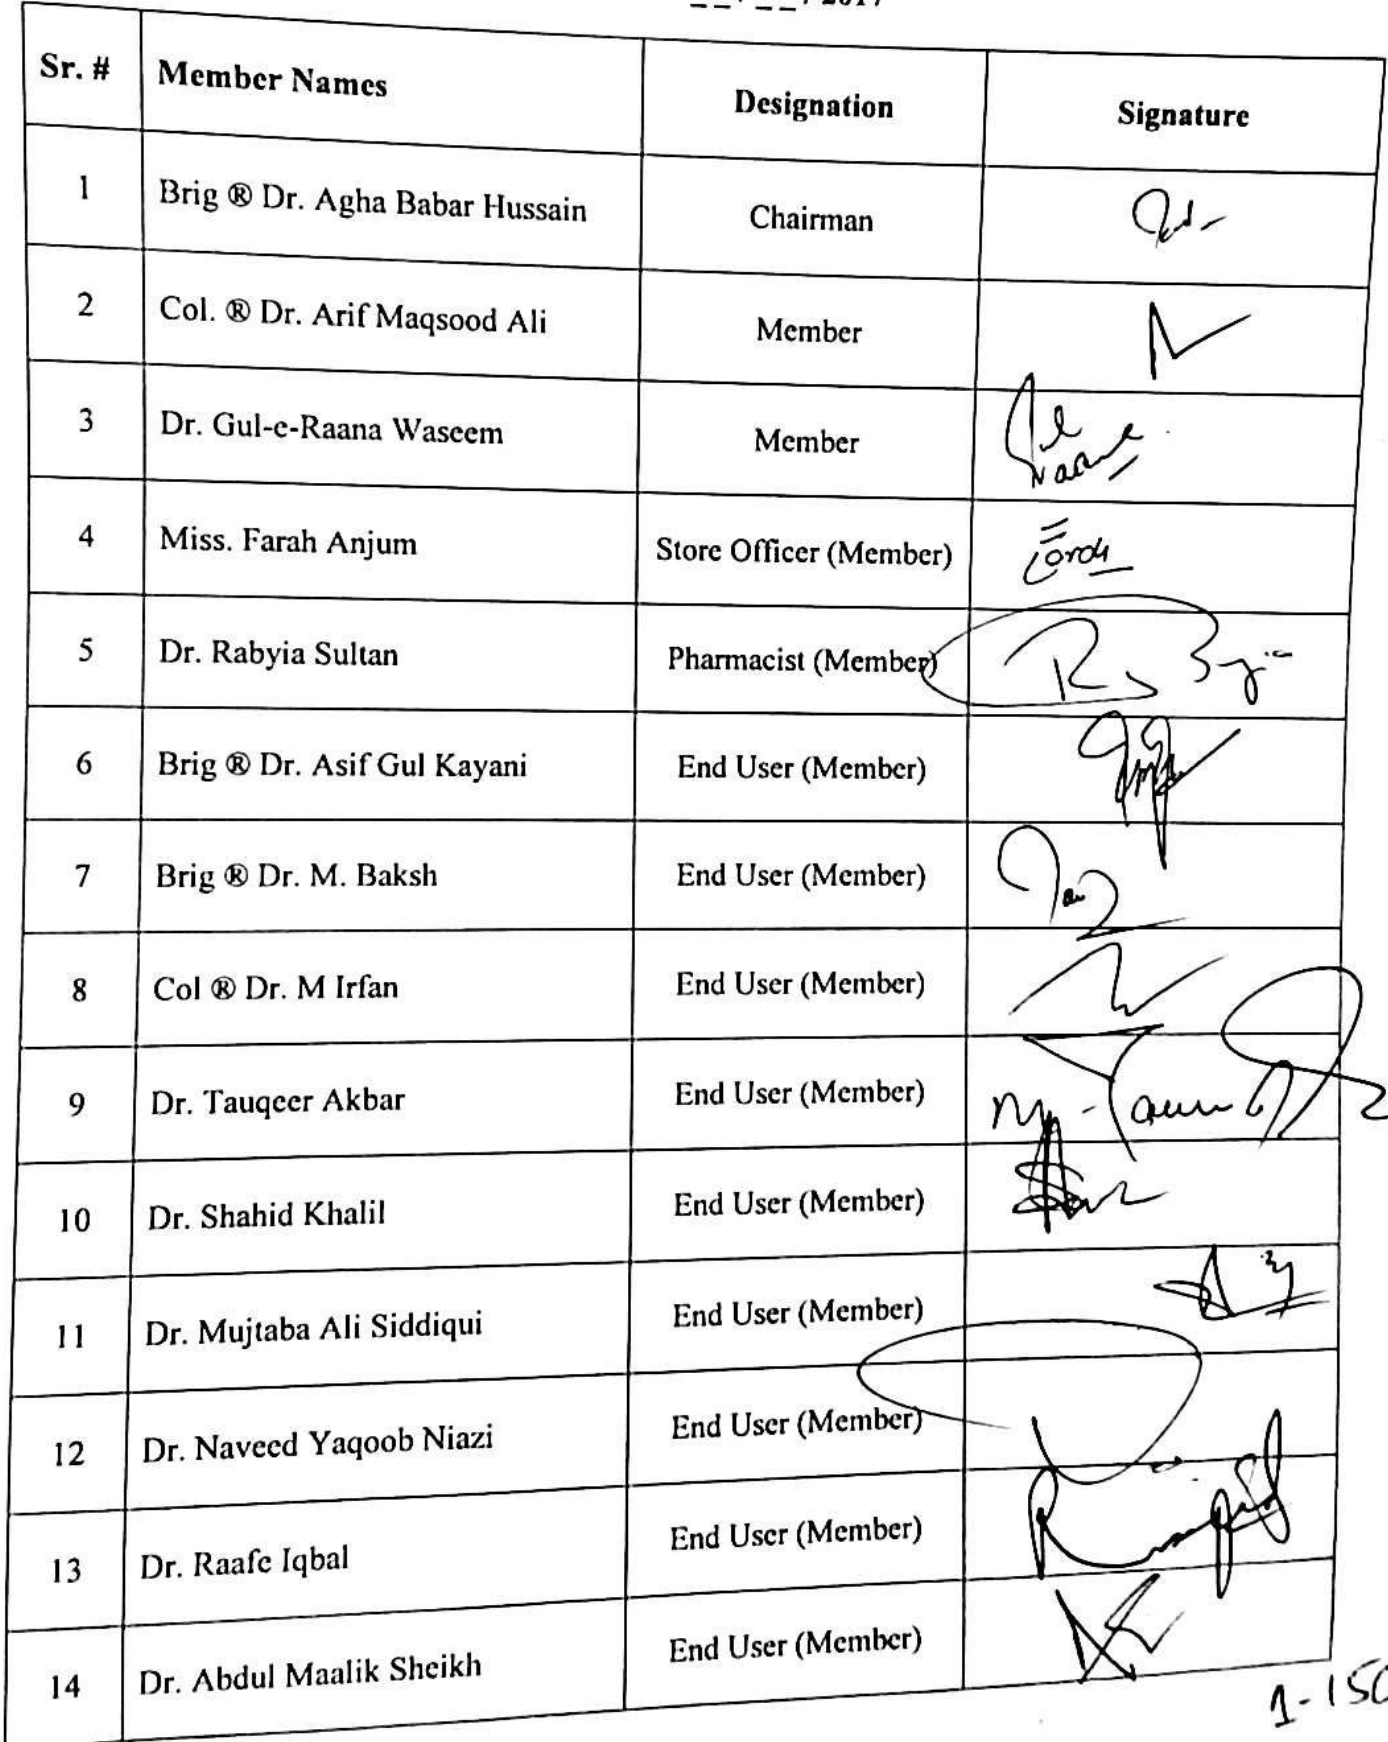 __/__/2017
Sr. # Member Names Designation Signature
1 Brig ® Dr. Agha Babar Hussain Chairman
2 Col. ® Dr. Arif Maqsood Ali Member
3 Dr. Gul-e-Raana Waseem Member
4 Miss. Farah Anjum Store Officer (Member)
5 Dr. Rabyia Sultan Pharmacist (Member)
6 Brig ® Dr. Asif Gul Kayani End User (Member)
7 Brig ® Dr. M. Baksh End User (Member)
8 Col ® Dr. M Irfan End User (Member)
9 Dr. Tauqeer Akbar End User (Member)
10 Dr. Shahid Khalil End User (Member)
11 Dr. Mujtaba Ali Siddiqui End User (Member)
12 Dr. Naveed Yaqoob Niazi End User (Member)
13 Dr. Raafe Iqbal End User (Member)
14 Dr. Abdul Maalik Sheikh End User (Member)
1-150